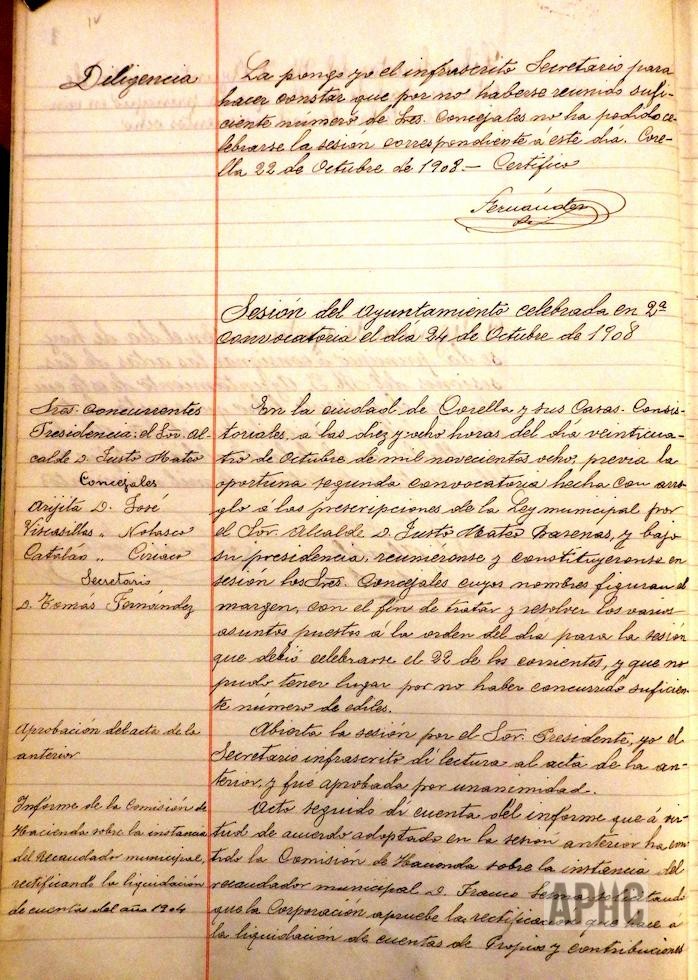 Diligencia
La pongo yo el infrascrito Secretario para
hacer constar que por no haberse reunido sufi-
ciente número de Sres. Concejales no ha podido ce-
lebrarse la sesión correspondiente á este día. Core-
lla 22 de Octubre de 1908.— Certifico
Fernández
Sesión del Ayuntamiento celebrada en 2ª
convocatoria el día 24 de Octubre de 1908
Sres. Concurrentes
Presidencia: el Sor. Al-
calde D. Justo Mateo
Concejales
Arijita D. José
Viscasillas „ Nolasco
Catalán „ Ciriaco
Secretario
D. Tomás Fernández
En la ciudad de Corella y sus Casas Consis-
toriales, á las diez y ocho horas del día veinticua-
tro de Octubre de mil novecientos ocho, previa la
oportuna segunda convocatoria hecha con arre-
glo á las prescripciones de la Ley municipal por
el Sor. Alcalde D. Justo Mateo, y bajo
su presidencia, reunieronse y constituyeronse en
sesión los Sres. Concejales cuyos nombres figuran al
margen, con el fin de tratar y resolver los varios
asuntos puestos á la orden del día para la sesión
que debió celebrarse el 22 de los corrientes, y que no
pudo tener lugar por no haber concurrido suficien-
te número de ediles.
Aprobación del acta de la
anterior
Abierta la sesión por el Sor. Presidente, yo el
Secretario infrascrito dí lectura al acta de la an-
terior, y fué aprobada por unanimidad.
Informe de la Comisión de
Hacienda sobre la instancia
del Recaudador municipal,
rectificando la liquidación
de cuentas del año 1904
Acto seguido dí cuenta del informe que á vir-
tud de acuerdo adoptado en la sesión anterior ha emi-
tido la Comisión de Hacienda sobre la instancia del
recaudador municipal D. Franco solicitando
que la Corporación apruebe la rectificación que hace á
la liquidación de cuentas de Propios y contribuciones
APHC